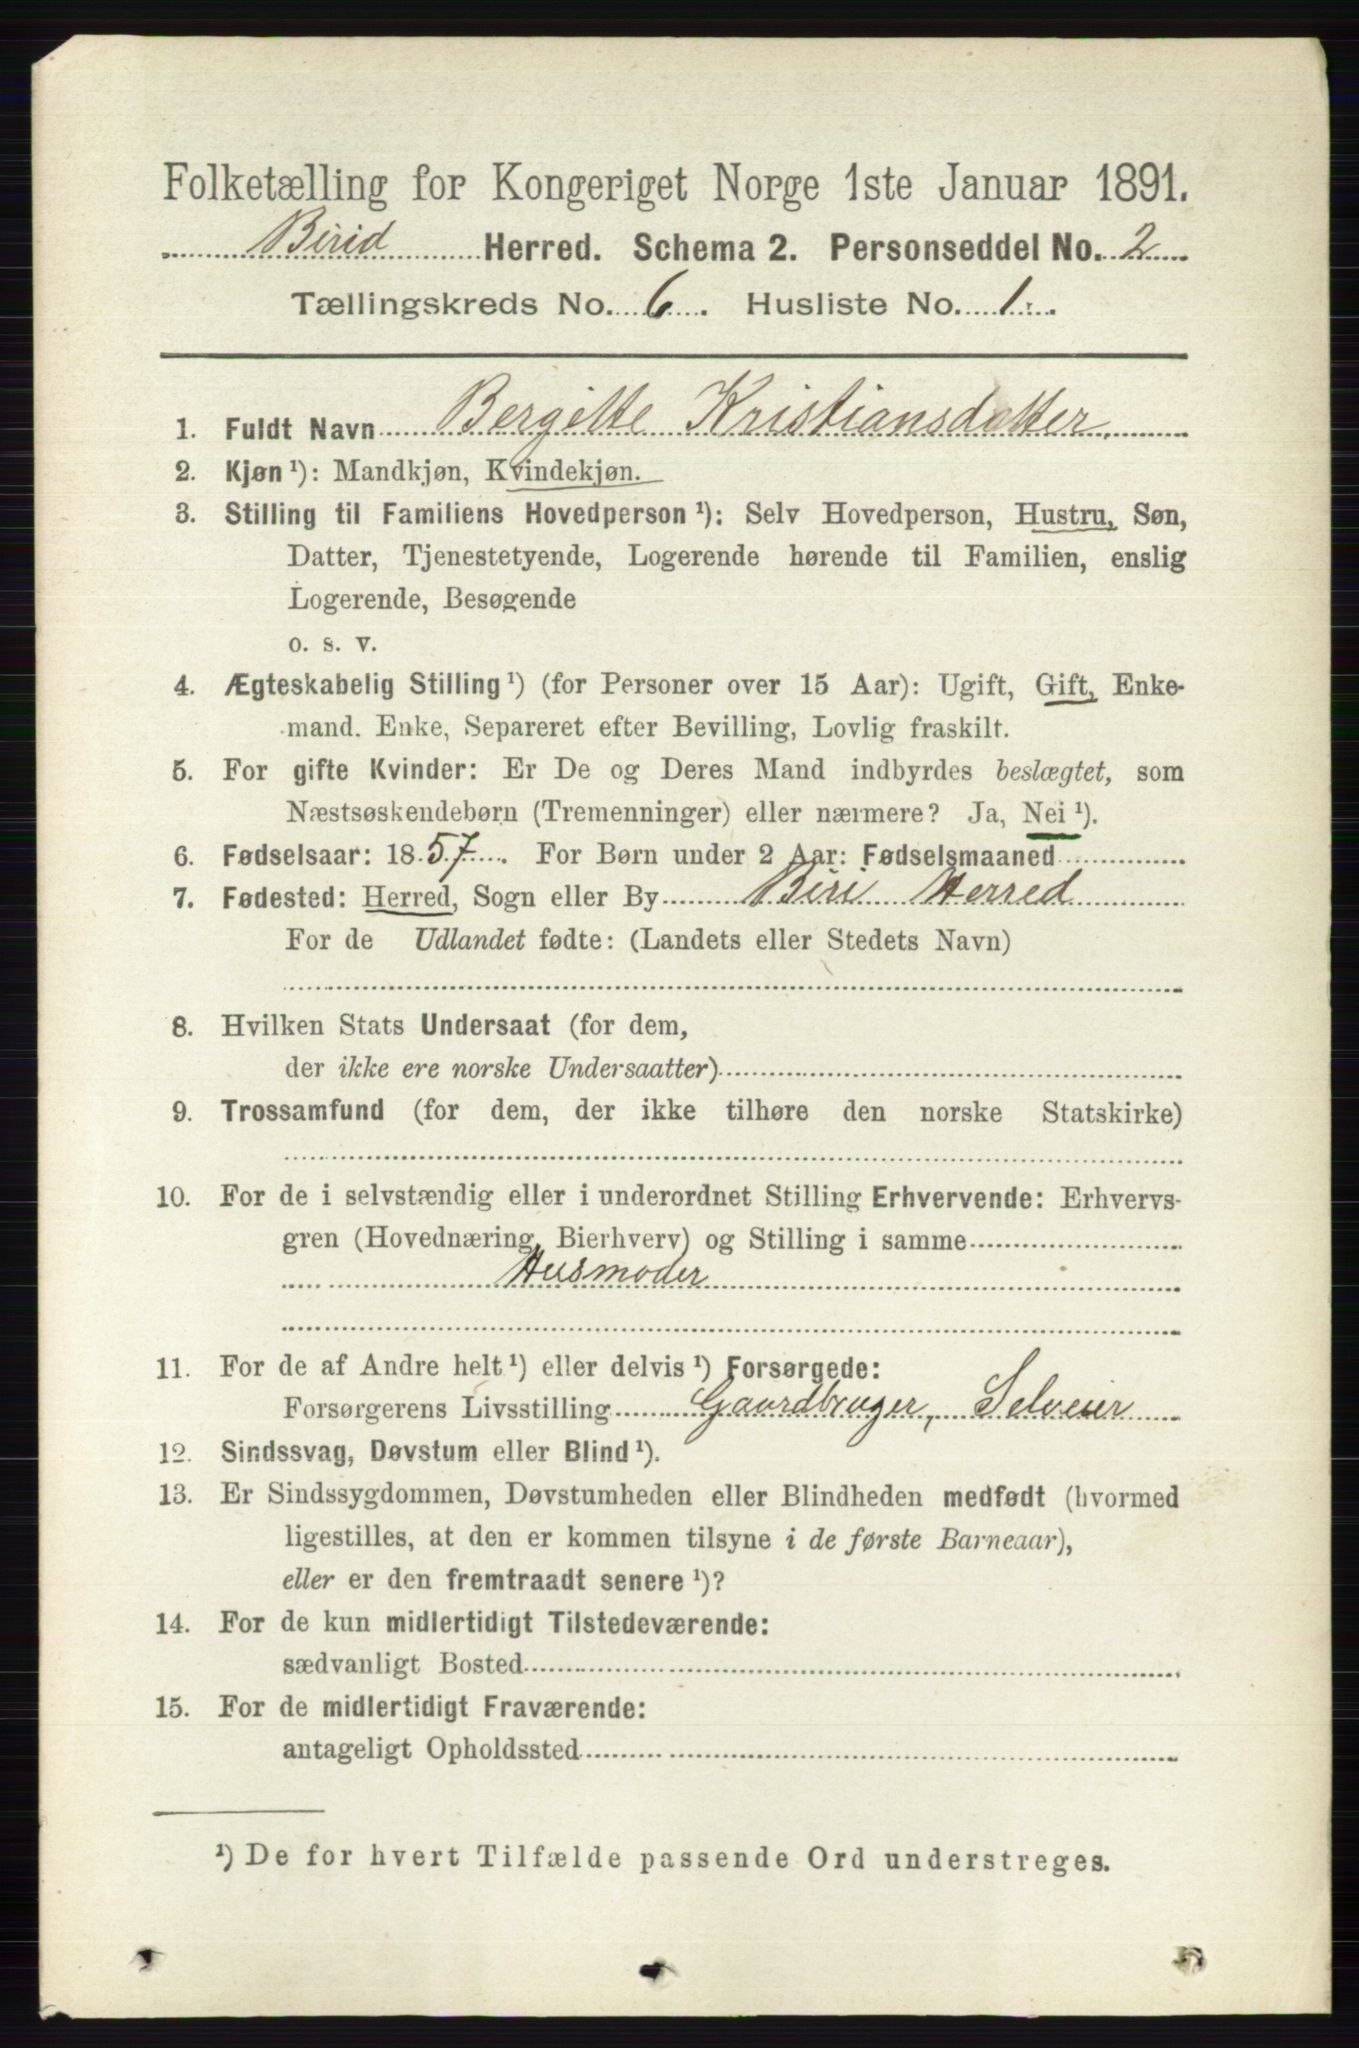 Folketælling for Kongeriget Norge 1ste Januar 1891.
Birid Herred. Schema 2. Personseddel No. 2
Tællingskreds No. 6. Husliste No. 1.
1. Fuldt Navn Bergitte Kristiansdatter.
2. Kjøn ¹): Mandkjøn, Kvindekjøn.
3. Stilling til Familiens Hovedperson ¹): Selv Hovedperson, Hustru, Søn,
Datter, Tjenestetyende, Logerende hørende til Familien, enslig
Logerende, Besøgende
o. s. v.
4. Ægteskabelig Stilling ¹) (for Personer over 15 Aar): Ugift, Gift, Enke-
mand. Enke, Separeret efter Bevilling, Lovlig fraskilt.
5. For gifte Kvinder: Er De og Deres Mand indbyrdes beslægtet, som
Næstsøskendebørn (Tremenninger) eller nærmere? Ja, Nei ¹).
6. Fødselsaar: 1857. For Børn under 2 Aar: Fødselsmaaned
7. Fødested: Herred, Sogn eller By Biri Herred
For de Udlandet fødte: (Landets eller Stedets Navn)
8. Hvilken Stats Undersaat (for dem,
der ikke ere norske Undersaatter)
9. Trossamfund (for dem, der ikke tilhøre den norske Statskirke)
10. For de i selvstændig eller i underordnet Stilling Erhvervende: Erhvervs-
gren (Hovednæring, Bierhverv) og Stilling i samme
Husmoder
11. For de af Andre helt ¹) eller delvis ¹) Forsørgede:
Forsørgerens Livsstilling Gaardbruger, Selveier
12. Sindssvag, Døvstum eller Blind ¹).
13. Er Sindssygdommen, Døvstumheden eller Blindheden medfødt (hvormed
ligestilles, at den er kommen tilsyne i de første Barneaar),
eller er den fremtraadt senere ¹)?
14. For de kun midlertidigt Tilstedeværende:
sædvanligt Bosted
15. For de midlertidigt Fraværende:
antageligt Opholdssted
¹) De for hvert Tilfælde passende Ord understreges.